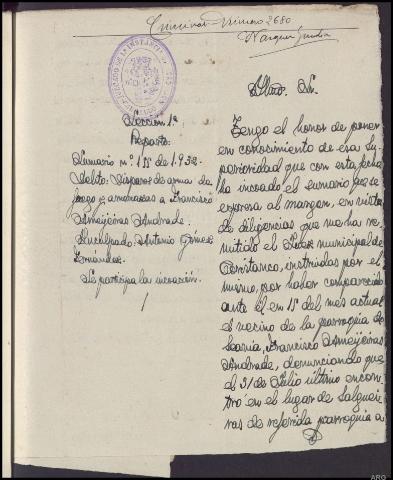 Criminal Número 2680
JUZGADO DE LA INSTANCIA
Sección 1ª
Reparto
Sumario nº 155 de 1932
Delito: Disparos de arma de
fuego y amenazas a Francisco
Ameijeiras Andrade.
Inculpado Antonio Gómez
Fernández.
Se participa la incoación.
Iltmo. Sr.
Tengo el honor de poner
en conocimiento de esa Su-
perioridad que con esta fecha
ha incoado el sumario que se
expresa al margen, en virtud
de diligencias que me ha re-
mitido el Juez municipal de
instruidas por el
mismo, por haber comparecido
ante el en 15 del mes actual
el vecino de la parroquia de
Francisco Ameijeiras
Andrade, denunciando que
el 31 de Julio último encon-
tró en el lugar de Salguei-
ras de referida parroquia a
ARG